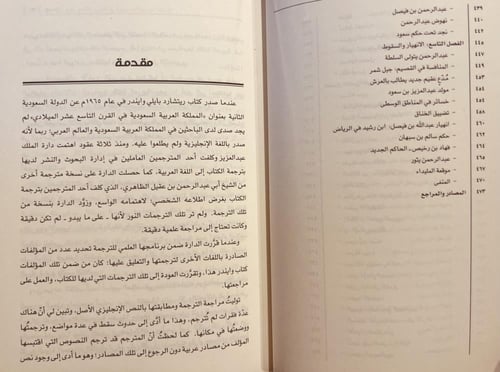 – عبدالرحمن بن فيصل ٤٣٩
– نهوض عبدالرحمن ٤٤٠
– نجد تحت حكم سعود
الفصل التاسع، الانهيار والسقوط ٤٤٥
– عبدالرحمن يتولى السلطة
– المنافسة في القصيم: جبل شمر
– مُدَّعٍ عظيم جديد يطالب بالعرش ٤٥٣
– مولد عبدالعزيز بن سعود
– خسائر في المناطق الوسطى
– تضييق الخناق
– انهيار عبدالله بن فيصل: ابن رشيد في الرياض ٤٦٠
– حكم سالم بن سبهان
– فهاد بن رخيص، الحاكم الجديد
– عبدالرحمن يثور
– موقعة المليداء ٤٦٧
– المنفى ٤٧٠
المصادر والمراجع ٤٧٣
مقدمة
عندما صدر كتاب ريتشارد بايلي وايندر في عام ١٩٦٥م عن الدولة السعودية
الثانية بعنوان «المملكة العربية السعودية في القرن التاسع عشر الميلادي، لم
يجد صدى لدى الباحثين في المملكة العربية السعودية والعالم العربي؛ ربما لأنه
صدر باللغة الإنجليزية ولم يطلعوا عليه. ومنذ ثلاثة عقود اهتمت دارة الملك
عبدالعزيز وكلفت أحد المترجمين العاملين في إدارة البحوث والنشر لديها
بترجمة الكتاب إلى اللغة العربية. كما حصلت الدارة على نسخة مترجمة أخرى
من الشيخ أبي عبدالرحمن بن عقيل الظاهري، الذي كلف أحد المترجمين بترجمة
الكتاب بغرض اطلاعه الشخصي؛ لاهتمامه الواسع، وزوَّد الدارة بنسخة من
تلك الترجمة. ولم تر تلك الترجمات النور لأنها – على ما يبدو – لم تكن دقيقة
وكانت تحتاج إلى مراجعة علمية دقيقة.
وعندما قرَّرت الدارة ضمن برنامجها العلمي للترجمة تحديد عدد من المؤلفات
الصادرة باللغات الأخرى لترجمتها والتعليق عليها؛ كان من ضمن تلك المؤلفات
كتاب وايندر هذا، وتقرَّرت العودة إلى تلك الترجمات التي لديها للكتاب، والعمل على
مراجعتها.
توليتُ مراجعة الترجمة ومطابقتها بالنص الإنجليزي الأصل، وتبين لي أنَّ هناك
عدَّة فقرات لم تُترجم، وهذا ما أدَّى إلى حدوث سقط في عدة مواضع، وترجمتُها
ووضعتُها في مكانها. كما لحظتُ أنَّ المترجم قد ترجم النصوص التي اقتبسها
المؤلف من مصادر عربية دون الرجوع إلى تلك المصادر؛ وهو ما أدى إلى وجود نص